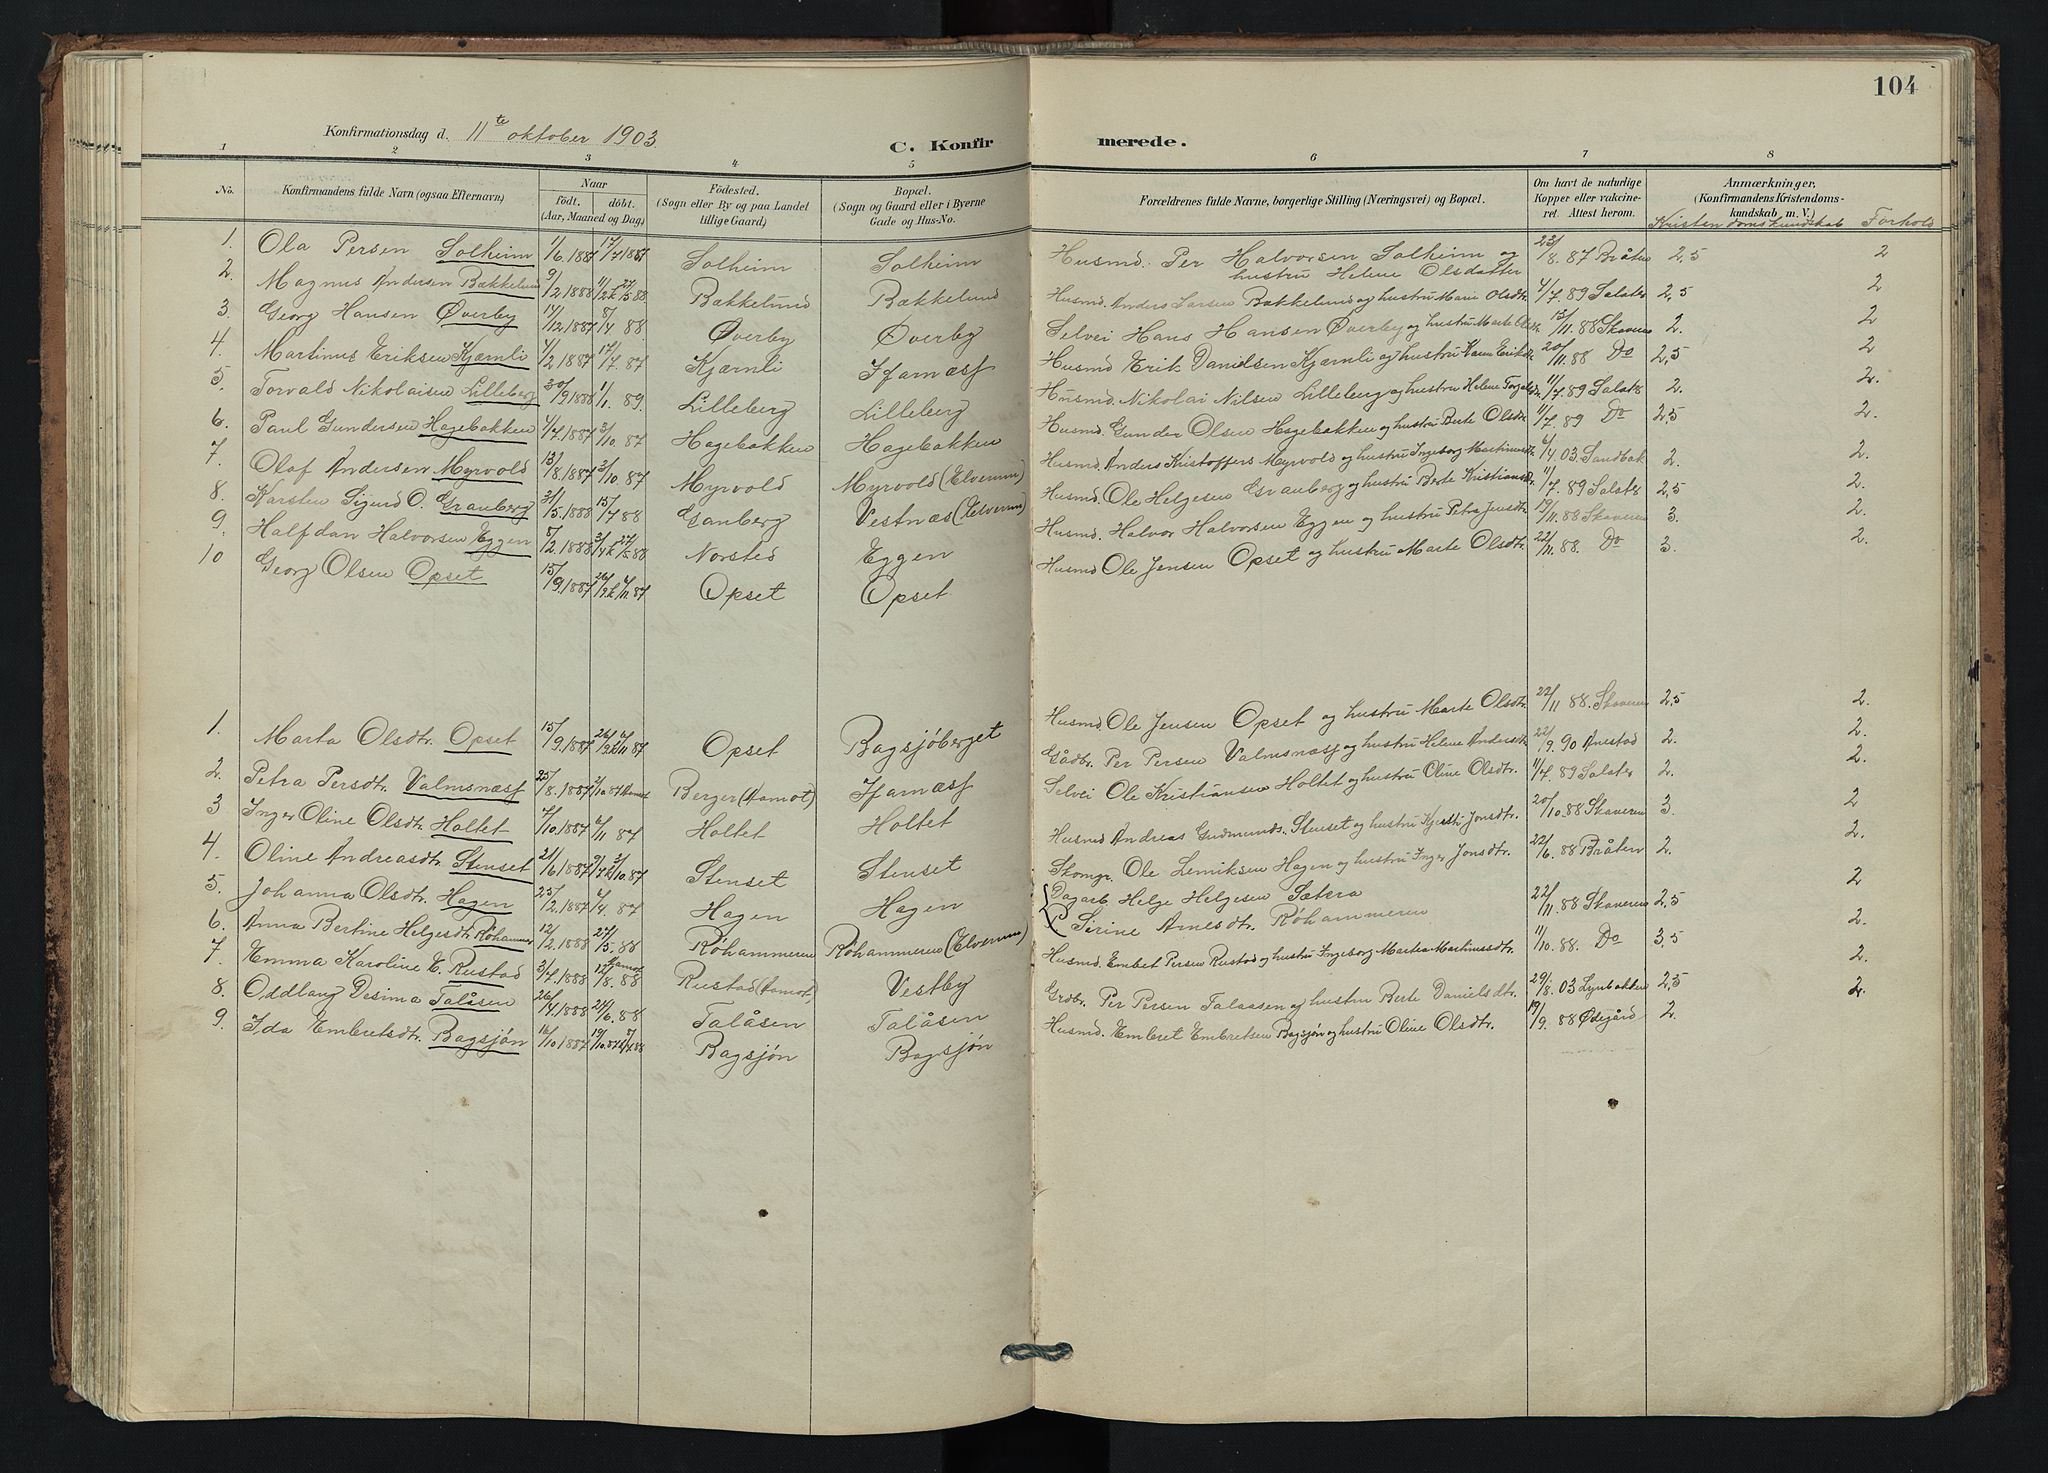 104
Konfirmationsdag d. 11te oktober 1903
C. Konfirmerede.
1 2 3 4 5 6 7 8
No. Konfirmandens fulde Navn (ogsaa Efternavn) Naar födt. döbt. (Aar, Maaned og Dag) Födested. (Sogn eller By og paa Landet tillige Gaard) Bopæl. (Sogn og Gaard eller i Byerne Gade og Hus-No. Forældrenes fulde Navne, borgerlige Stilling (Næringsvei) og Bopæl. Om havt de naturlige Kopper eller vakcineret. Attest herom. Anmærkninger, (Konfirmandens Kristendomskundskab m. V.) Kristendomskundskab Forhold
1. Ola Persen Solheim 1/6 1887 17/7 1887 Solheim Solheim Husmd. Per Halvorsen Solheim og hustru Helene Olsdatter 23/8. 87 Bråten 2,5 2
2. Magnus Andersen Bækkelund 9/2 1888 Bækkelund Bækkelund Husmd. Anders Larsen Bækkelund og hustru Marie Olsdtr. 4/7. 89 Salater 2,5 2
3. Georg Hansen Øverby 17/12 1887 8/4 88 Øverby Øverby Selvei Hans Hansen Øverby og hustru Marte Olsdtr. 13/11. 88 Skaveren 2. 2
4. Martinus Eriksen Kjærnli 4/2 1887 17/7. 87 Kjærnli Ifarnæsf Husmd Erik Danielsen Kjærnli og hustru Karen Eriksdtr. 20/11. 88 Do 2,5 2
5. Torvald Nikolaisen Lilleberg 30/9 1888 1/1. 89 Lilleberg Lilleberg Husmd. Nikolai Nilsen Lilleberg og hustru Helene 11/7. 89 Salater 2. 2.
6. Paul Gundersen Hagebakken 4/7 1887 3/10. 87 Hagebakken Hagebakken Husmd. Gunder Olsen Hagebakken og hustru Berte Olsdtr. 11/7. 89 Do 2,5 2.
7. Olaf Andersen Myrvold 13/8. 1887 3/10. 87 Myrvold Myrvold (Elverum) Husmd. Anders Kristoffers. Myrvold og hustru Ingeborg Martinusdtr. 6/4. 03. Sandbak 2. 2.
8. Karsten Sigurd O. Granberg 31/5. 1888 15/7 88 Granberg Vestnæs (Elverum) Husmd. Ole Helgesen Granberg og hustru Berte Kristiansdtr. 11/7. 89 Salater 2,5 2.
9. Halfdan Halvorsen Eggen 8/2. 1888 Norsted Eggen Husmd. Halvor Halvorsen Eggen og hustru Petra Jensdtr. 19/11. 88 Skaveren 3. 2.
10 Georg Olsen Opset 15/9. 1887 Opset Opset Husmd Ole Jensen Opset og hustru Marte Olsdtr. 22/11. 88. Do 3. 2.
1. Marta Olsdtr. Opset 15/9. 1887 Opset Bagsjöberget Husmd. Ole Jensen Opset og hustru Marte Olsdtr. 22/11 88. Skaveren 2,5 2.
2. Petra Persdtr. Valmsnæsf 25/8. 1887 Berger (Aamot) Ifarnæsf Gådbr. Per Persen Valmsnæsf og hustru Helene Andersdtr. 22/9. 90 2. 2.
3 Inger Oline Olsdtr. Holtet 7/10. 1887 6/11 87 Holtet Holtet Selvei Ole Kristiansen Holtet og hustru Oline Olsdtr. 11/7. 89 Salater 2. 2.
4. Oline Andreasdtr. Stenset 21/6. 1887 Stenset Stenset Husmd Andreas Gudmunds. Stenset og hustru Kjersti Jonsdtr. 20/10. 88 Skaveren 3. 2
5. Johanna Olsdtr. Hagen 25/2. 1887 6/4. 87 Hagen Hagen Skomgr. Ole Lemiksen Hagen og hustru Inger Jonsdtr. 22/6. 88 Bråten 2. 2.
6. Anna Bertine Helgesdtr. Röhammer 12/2. 1888 27/5. 88 Röhammeren Röhammeren (Elverum) Dagarb. Helge Helgesen Sætera Sirine Arnesdtr. Röhammeren 22/11. 88 Skaveren 2,5 2
7. Emma Karoline E. Rustad 3/7. 1888 12/8. 88 Aamot Rustad (Aamot) Vestby Husmd. Embet Persen Rustad og hustru Ingeborg Martea Martinusdtr. 11/10. 88. Do 3,5 2.
8. Oddlaug Desima Talåsen 26/4. 1888 24/6. 88 Talåsen Talåsen Grdbr. Per Persen Talaasen og hustru Berte Danielsdtr. 29/8. 03 Lynbakken 2,5 2.
9. Ida Embretsdtr. Bagsjön 16/10. 1887 Bagsjön Bagsjön Husmd. Embret Embretsen Bagsjön og hustru Oline Olsdtr. 19/9. 88 Ødegård 2. 2.